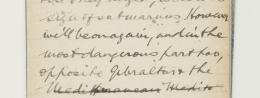 sign of submarines, However
we'll be on again, and in the
most dangerous part too,
opposite Gibraltar & the
Mediterranean Medite